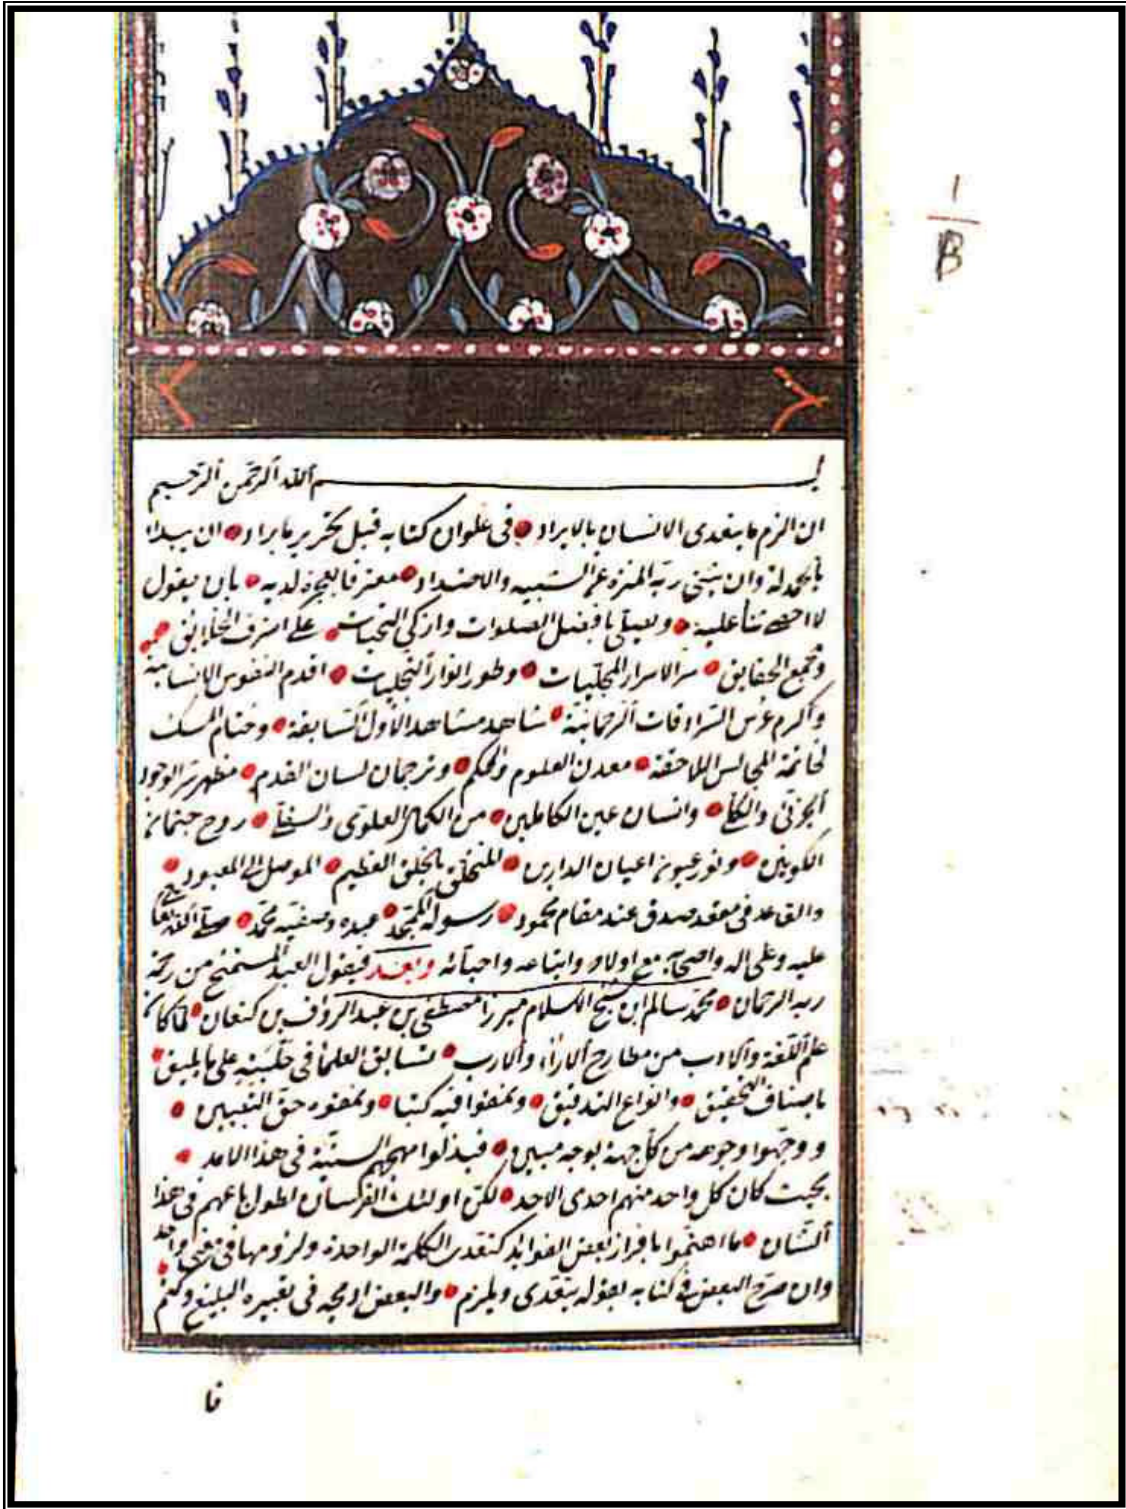 1
B
بسم الله الرحمن الرحيم
ان الزم ما يتعدى الانسان بالايراد في علوان كتابه قبل تحرير ما يراد ان يبدأ
بالحمدلة وان يثني ربه المنزه عن الشبيه والاضداد معترفا بالعجز لديه بان يقول
لا احصي ثنأ عليه ويصلي بافضل الصلوات وازكى التحيات على اشرف الخلايق
ومجمع الحقايق سر الاسرار المجلّيات وطور انوار التجليات اقدم النفوس الانسانية
واكرم عرش السرادقات الرحمانيّة شاهد مشاهد الاول السابقة وختام المسك
لخاتمة المجالس اللاحقة معدن العلوم والحكم وترجمان لسان القدم مظهر سر الوجود
الجزئي والكلي وانسان عين الكاملين من الكمال العلوي والسفلي روح جثمان
الكونين ونور عيون اعيان الدارين المتخلق بالخلق العظيم الموصل الى المعبود
والقاعد في مقعد صدق عند مقام محمود رسوله الممجّد عبده وصفيّه محمّد صلى الله تعالى
عليه وعلى اله واصحابه مع اولاده واتباعه واحبآئه وبعد فيقول العبد المستمنح من رحمة
ربه الرحمان محمّد سالم ابن شيخ الاسلام ميرزا مصطفى بن عبد الرؤف بن كنعان لما كان
علم اللغة والادب من مطارح الارآء والارب تسابق العلمأ في حلبته على ما يليق
باصناف التحقيق وانواع التدقيق ونمقوا فيه كتبا ونمقوه حق التبيين
ووجّهوا وجوهه من كل جهة بوجه مبين فبذلوا مهجهم السنيّة في هذا الامد
بحيث كان كل واحد منهم احدى الاحد لكن اولئك الفرسان اطول باعهم في هذا
الشان ما اهتموا بافراز بعض الفوائد كتعدى الكلمة الواحدة ولزومها في معنى واحد
وان صرّح البعض في كتابه بقوله يتعدى ويلزم والبعض ادمجه في تعبيره البليغ وكتم
فا